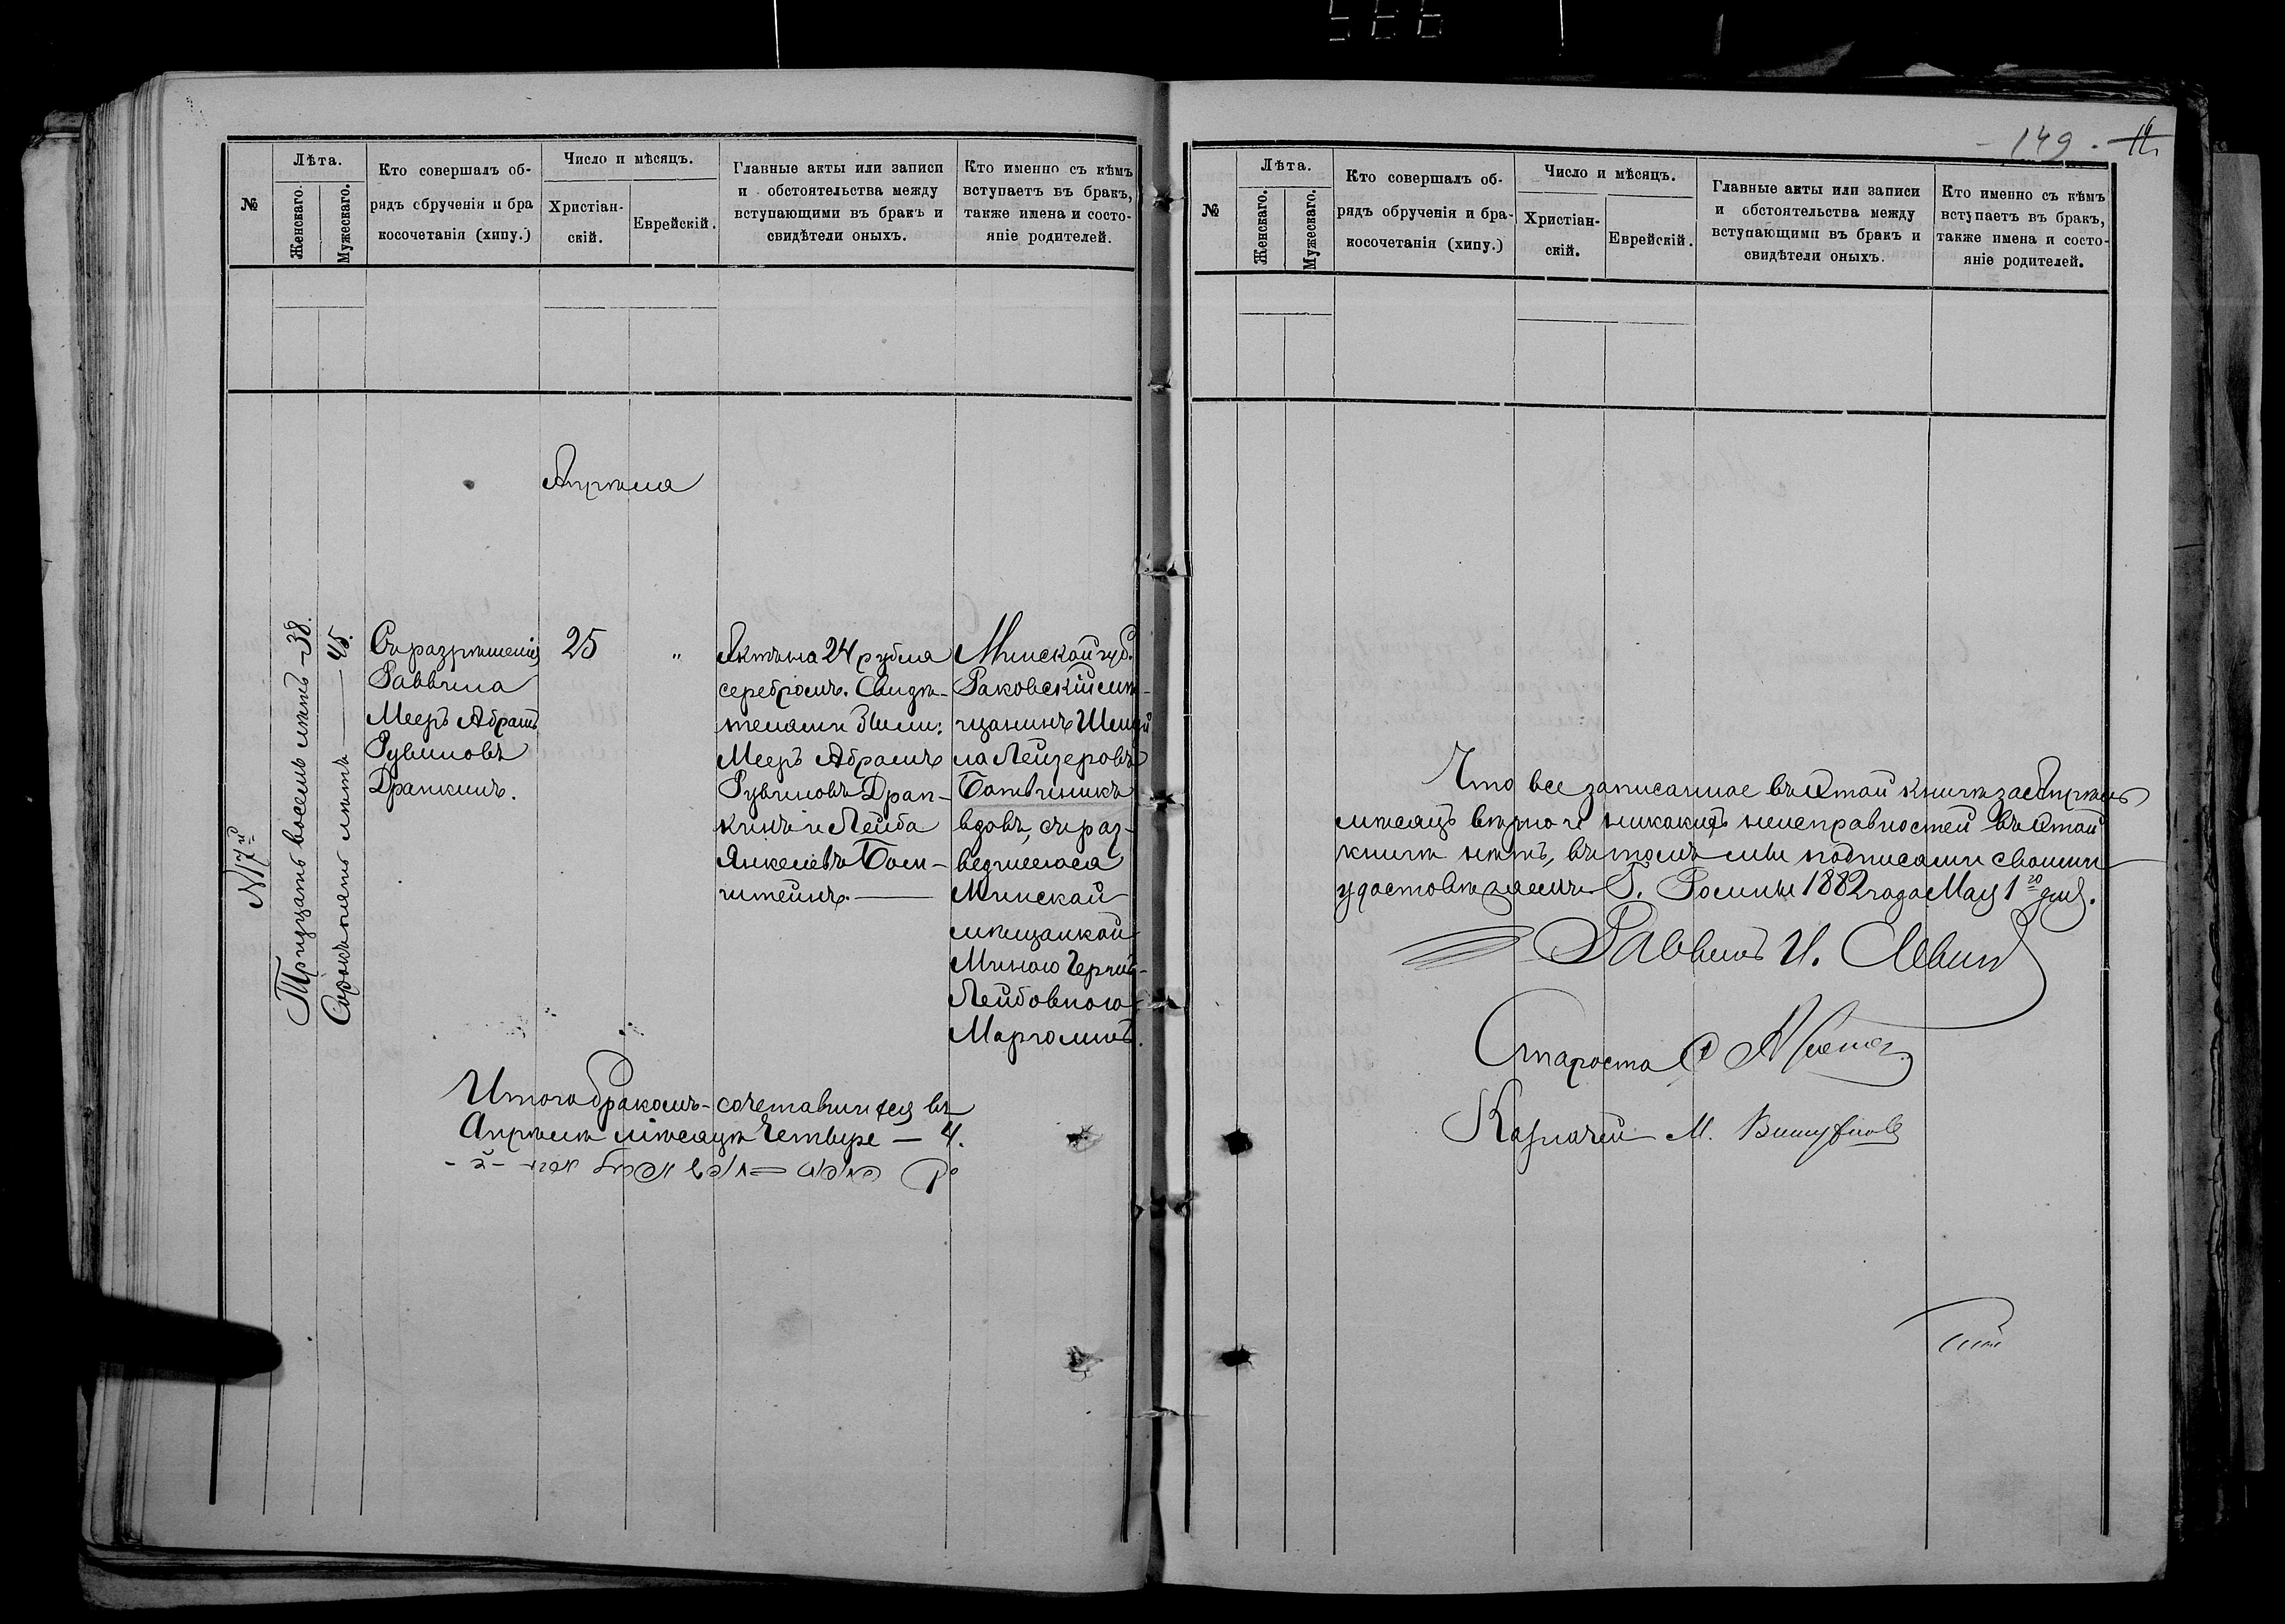 566
№
Лѣта.
Женскаго.
Мужескаго.
Кто совершалъ об-
рядъ обрученія и бра
косочетанія (хипу.)
Число и мѣсяцъ.
Христіан-
скій.
Еврейскій.
Главные акты или записи
и обстоятельства между
вступающими въ бракъ и
свидѣтели оныхъ.
Кто именно съ кѣмъ
вступаетъ въ бракъ,
также имена и состо-
яніе родителей.
Апрѣля
№ 7й
Тридцать восемь лѣтъ – 38.
Сорокъ пять лѣтъ — 45.
Съ разрѣшенія
Раввина
Мееръ Абрамъ
Рувиновъ
Драпкинъ.
25
"
Актъ на 24 рубля
серебромъ. Свидѣ-
телями были:
Мееръ Абрамъ
Рувиновъ Драп-
кинъ и Лейба
Янкелевъ
штейнъ. —
Минской губ.
Раковскій мѣ-
щанинъ
ла Лейзеровъ
Ботвинникъ
вдовъ, съ раз-
ведшеюся
Минской
мѣщанкой
Миною
Лейбовною
Марголинъ.
Итого бракомъ-сочетавшихся въ
Апрѣлѣ мѣсяцѣ четыре — 4.
149. 14
№
Лѣта.
Женскаго.
Мужескаго.
Кто совершалъ об-
рядъ обрученія и бра-
косочетанія (хипу.)
Число и мѣсяцъ.
Христіан-
скій.
Еврейскій.
Главные акты или записи
и обстоятельства между
вступающими въ бракъ и
свидѣтели оныхъ.
Кто именно съ кѣмъ
вступаетъ въ бракъ,
также имена и состо-
яніе родителей.
Что все записанное въ этой книгѣ за Апрѣль
мѣсяцъ вѣрно и никакихъ неисправностей въ этой
книгѣ нѣтъ, въ томъ мы подписами своими
удостовѣряемъ Г. Ромны 1882 года Мая 1го дня.
Раввинъ И. Левин
Староста
Казначей М.